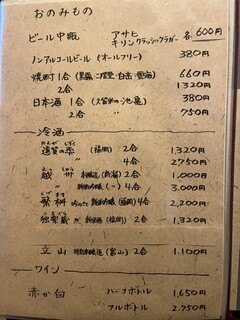 おのみもの
ビール中瓶 アサヒ
キリンクラシックラガー 各600円
ノンアルコールビール (オールフリー) 380円
焼酎1合 (黒霧・二階堂・白岳・雲海) 660円
2合 1320円
日本酒 1合 (久留米の池亀) 380円
2合 750円
冷酒
遠賀の雫 (福岡) 2合 1,320円
4合 2750円
越州 本醸造(新潟) 2合 1,000円
4合 3,000円
繁桝 (福岡) 4合 2,200円
独楽蔵 (福岡) 2合 1,320円
立山 特別本醸造(富山) 2合 1,100円
ワイン
赤か白 ハーフボトル 1,650円
フルボトル 2,750円